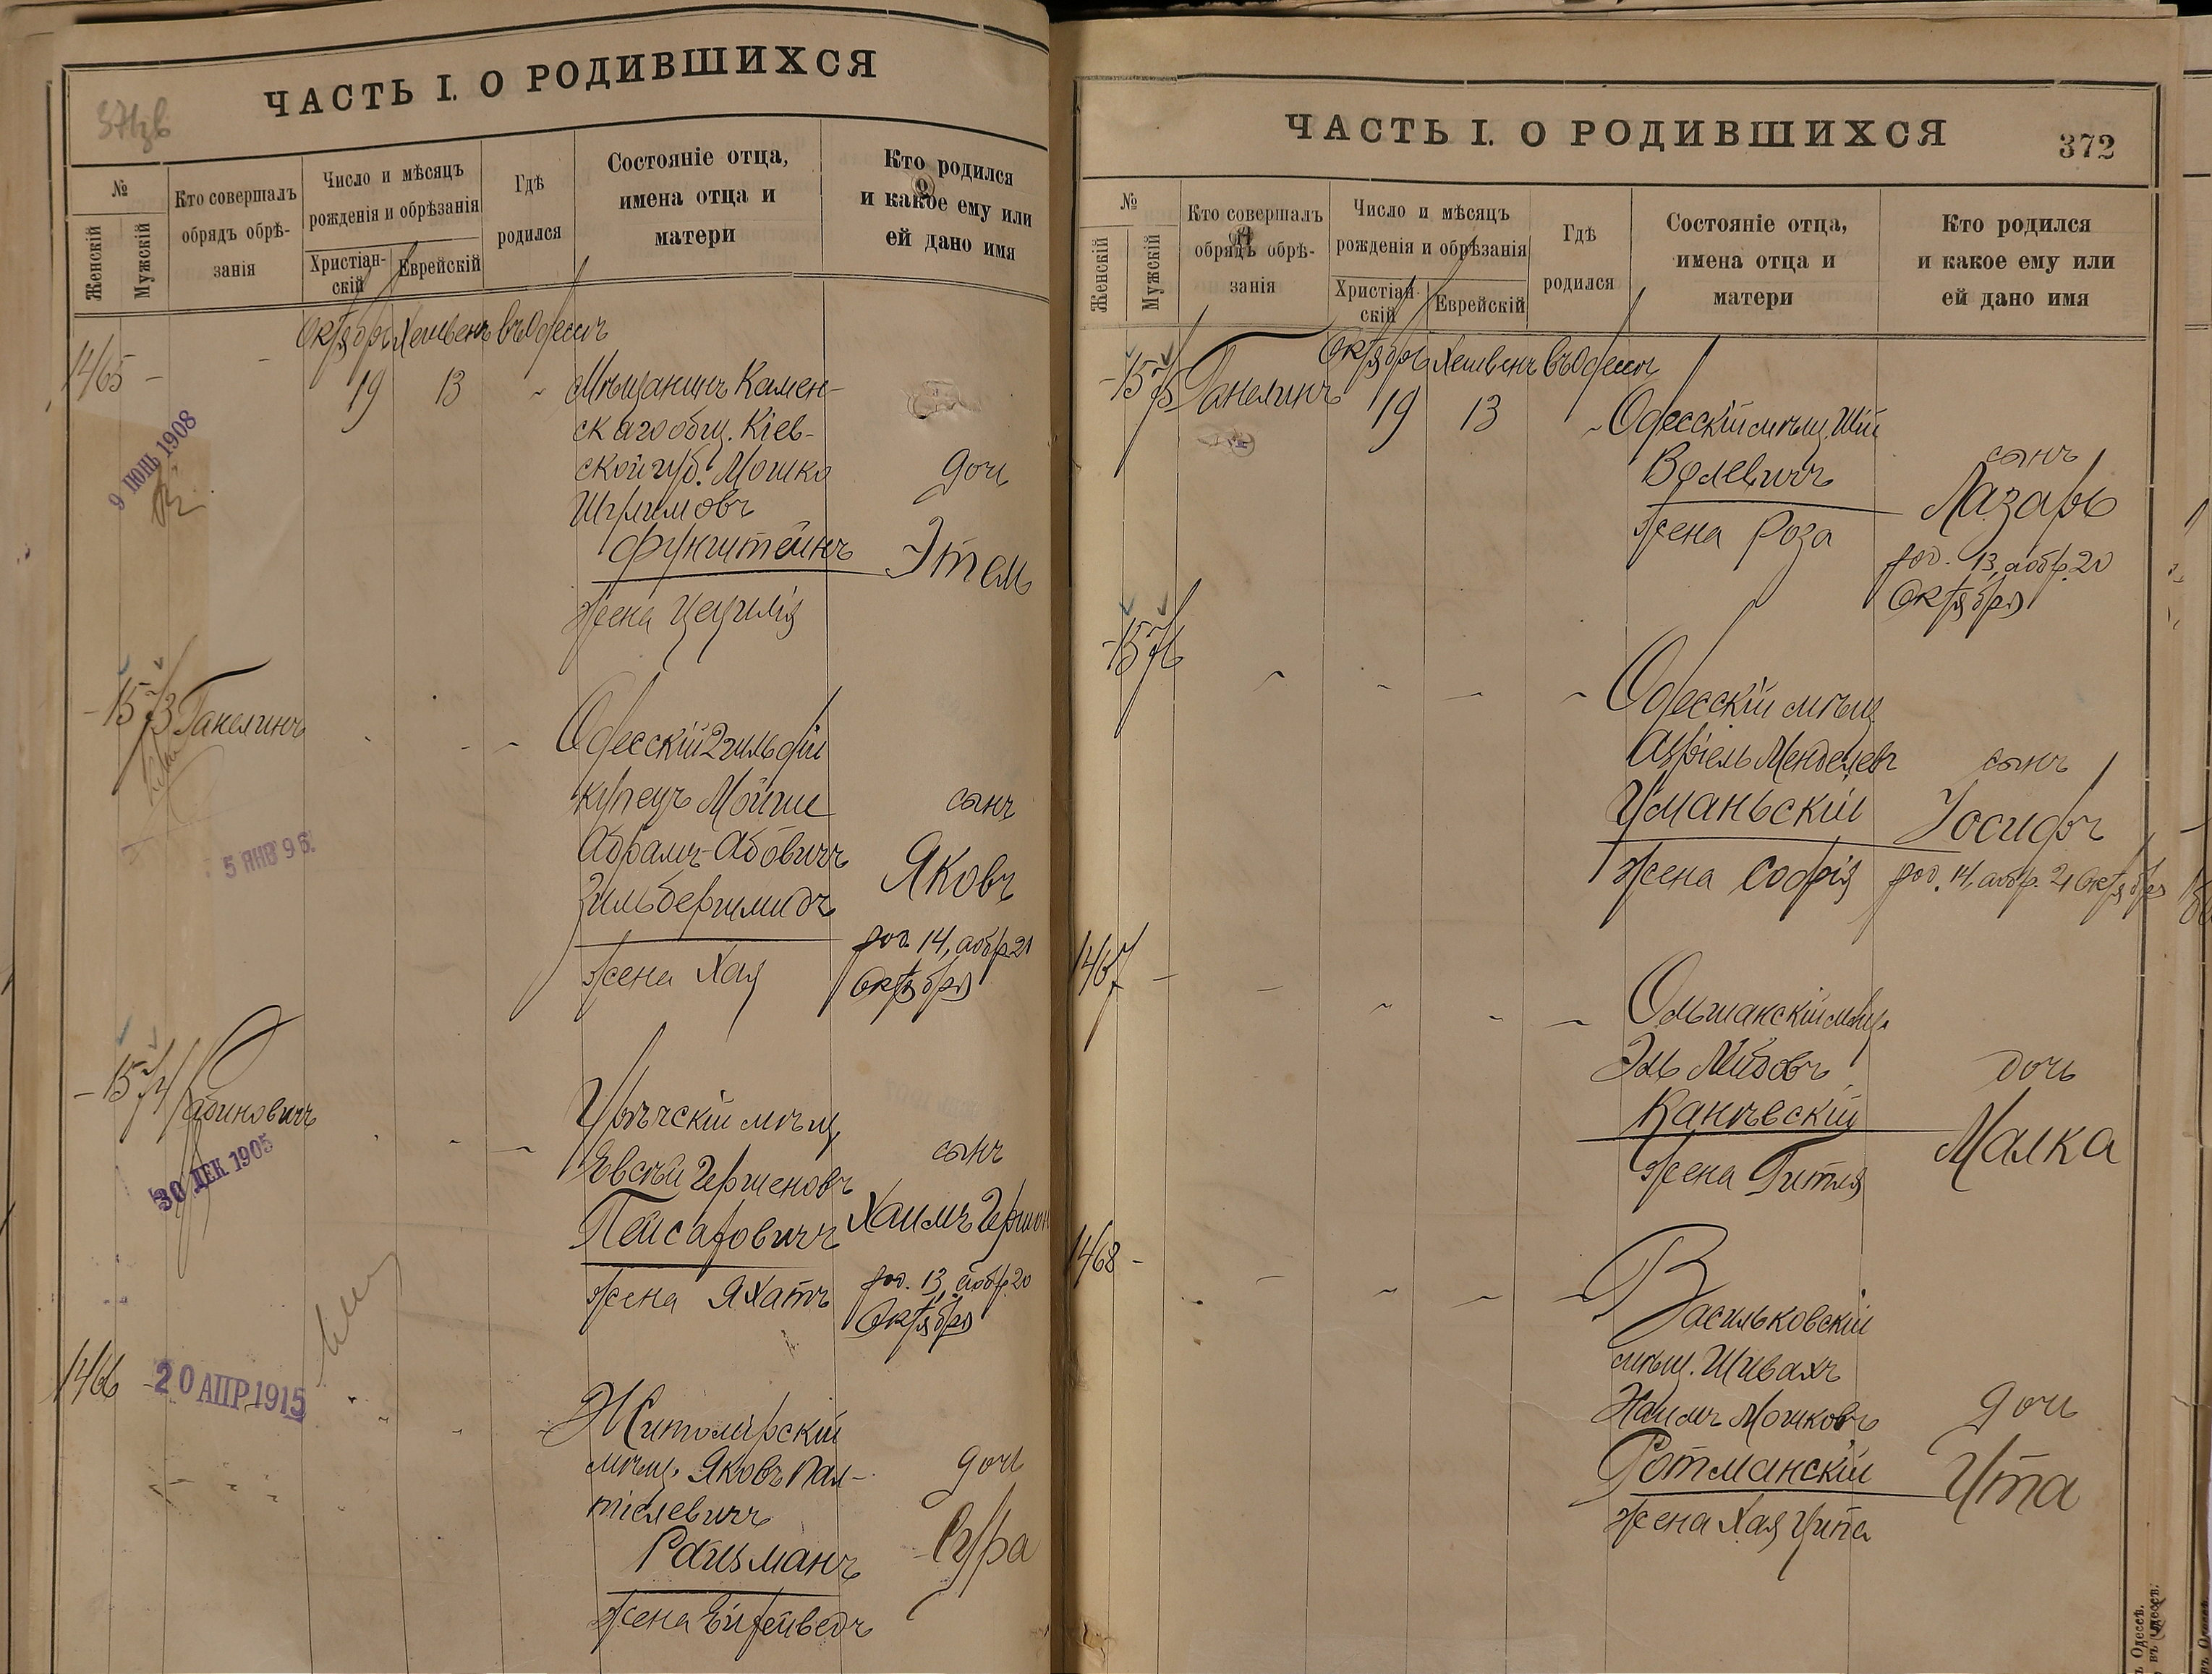 ЧАСТЬ I. О РОДИВШИХСЯ
№
Женскій
Мужскій
Кто совершалъ
обрядъ обрѣ-
занія
Число и мѣсяцъ
рожденія и обрѣзанія
Христіан-
скій
Еврейскій
Гдѣ
родился
Состояніе отца,
имена отца и
матери
Кто родился
и какое ему или
ей дано имя
Октябрь Хешвенъ въ Одессѣ
1465 -
19 13
Мѣщанинъ Камен-
скаго общ. Кіев-
ской губ. Мошко
дочь
Фунштейнъ
Этель
жена Цецилія
9 ІЮНЬ 1908
1573 Ганелинъ
Одесскій 2 гильдіи
купецъ Мойше
сынъ
Абрамъ-Абовичъ
Яковъ
Зильбершмидъ
род. 14, а обр. 21
жена Хая
Октября
5 ЯНВ 96
1574 Рабиновичъ
мѣщ.
сынъ
Евсѣй Гершеновъ
Пейсаховичъ
Хаимъ Гершон
жена Яхатъ
род. 13, а обр. 20
Октября
30 ДЕК 1905
1466 -
20 АПР. 1915
Житомірскій
мѣщ. Яковъ Пал-
дочь
тіелевичъ
Ройзманъ
Сура
жена Ейгейведъ
ЧАСТЬ I. О РОДИВШИХСЯ
372
№
Женскій
Мужскій
Кто совершалъ
обрядъ обрѣ-
занія
Число и мѣсяцъ
рожденія и обрѣзанія
Христіан-
скій
Еврейскій
Гдѣ
родился
Состояніе отца,
имена отца и
матери
Кто родился
и какое ему или
ей дано имя
Октябрь Хешвенъ въ Одессѣ
1575 Ганелинъ
19 13
Одесскій мѣщ. Шій
сынъ
Волевичъ
Лазарь
жена Роза
род. 13, а обр. 20
Октября
1576
Одесскій мѣщ.
Азріель Менделевъ
сынъ
Уманьскій
Іосифъ
жена Софія
род. 14, а обр. 21 Октября
1467 -
Ольшанскій мѣщ.
Эль Лейбовъ
дочь
Каневскій
Малка
жена Гитля
1468 -
Васильковскій
мѣщ. Шивахъ
Хаимъ Мошковъ
дочь
Ротманскій
Ита
жена Хая Ципа